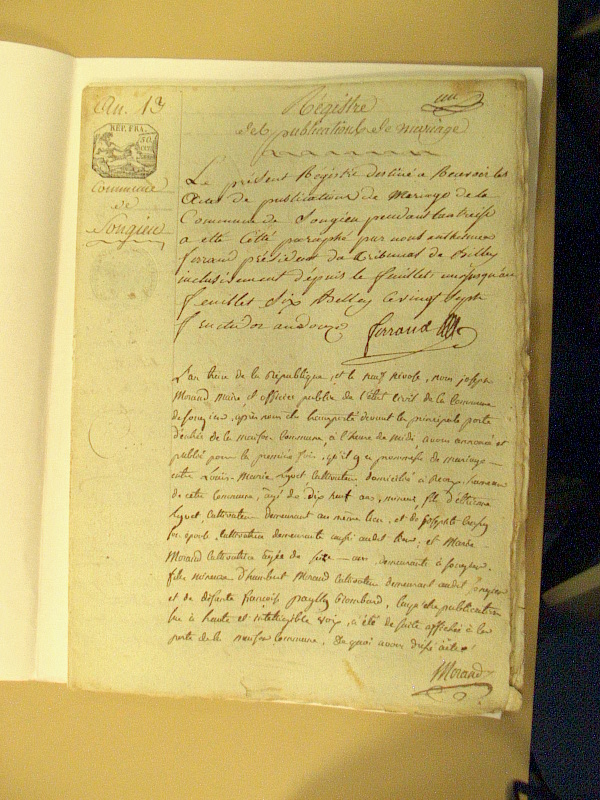 An. 13
REP. FRA.
Commune
de
Songieu
un
Régistre
des publications de mariage
Le présent Régistre destiné a Recevoir les
Actes de publications de Mariage de la
Commune de Songieu pendant l'an treise
a eté Cotté paraphé par nous
ferrand président du Tribunal de Belley
inclusivement dépuis le feuillet un jusqu'au
feuillet Six Belley Ce vingt Sept
fructidor an douze
ferrand
L'an treize de la République, et le neuf nivose, nous joseph
Morand, maire et officier public de l'état civil de la Commune
de songieu, après nous être transporté devant la principale porte
d'entrée de la maison Commune, à l'heure de midi, avons annoncé et
publié pour la première fois, qu'il y a promesse de mariage
entre Louis-Marie Cultivateur, domicilié à hameau
de cette Commune, âgé de dix neuf ans, mineur, fils d'étienne
Cultivateur demeurant au même lieu, et de josephte
son epouse, Cultivatrice demeurante aussi audit lieu, et Marie
Morand Cultivatrice agée de seize ans, demeurante à songieu,
fille mineure d'humbert Morand Cultivateur demeurant audit songieu
et de défunte françoise laquelle publication
lue à haute et intelligible voix, a été de suite affichée à la
porte de la maison Commune, De quoi avons dressé acte
Morand